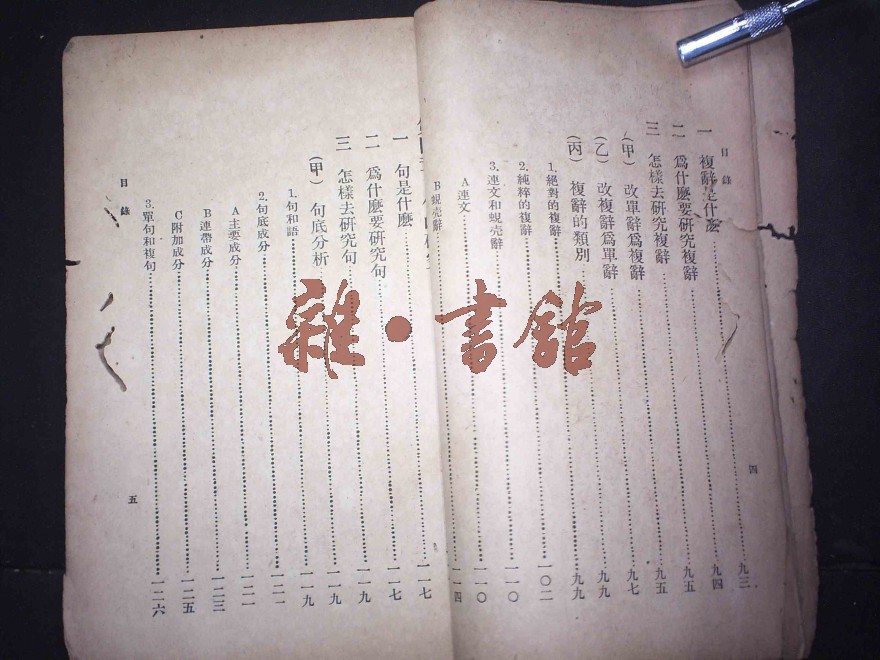 目錄
一 複辭是什麽……九三
二 爲什麽要研究複辭……九四
三 怎樣去研究複辭……九五
(甲) 改單辭爲複辭……九五
(乙) 改複辭爲單辭……九七
(丙) 複辭的類別……九九
1.絕對的複辭……九九
2.純粹的複辭……一〇二
3.連文和蜆壳辭……一一〇
A連文……一一〇
B蜆壳辭……一一四
四
一 句是什麽……一一七
二 爲什麽要研究句……一一七
三 怎樣去研究句……一一九
(甲) 句底分析……一一九
1.句和語……一一九
2.句底成分……一二一
A主要成分……一二一
B連帶成分……一二三
C附加成分……一二五
3.單句和複句……一二六
目錄
五
雜·書館